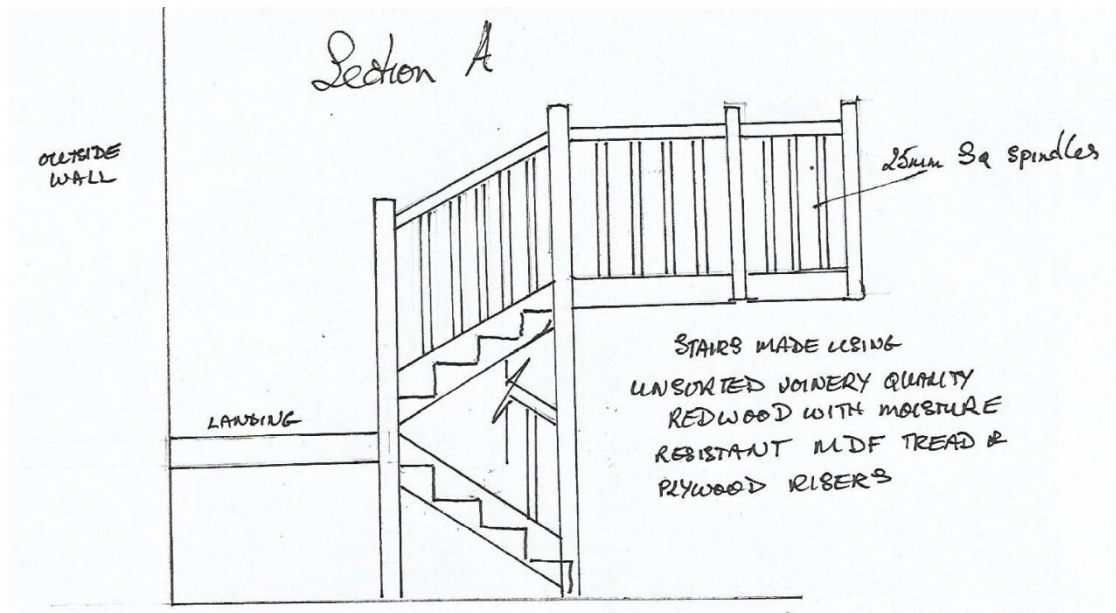 Section A
OUTSIDE
WALL
25mm Sq Spindles
STAIRS MADE USING
UNSORTED JOINERY QUALITY
REDWOOD WITH MOISTURE
RESISTANT MDF TREAD &
PLYWOOD RISERS
LANDING